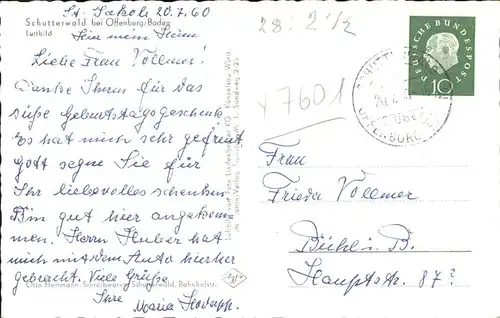 St. Jakob 20.7.60
Schutterwald bei Offenburg/Baden
Luftbild
Hier mein Heim
Liebe Frau Vollmer!
Danke Ihnen für das
süße Geburtstagsgeschenk
Es hat mich sehr gefreut
gott segne Sie für
Ihr liebevolles schenken
Bin gut hier angekom-
men. Herrn Huber hat
mich mit dem Auto hierher
gebracht. Viele Grüße
Otto Herrmann, Schreibwaren, Schutterwald, Bahnhofstr.
Ihre
Maria
28: 2 1/2
7601
DEUTSCHE BUNDESPOST
10
über
OFFENBURG
Frau
Frieda Vollmer
Bühl i. B.
Hauptstr. 87?